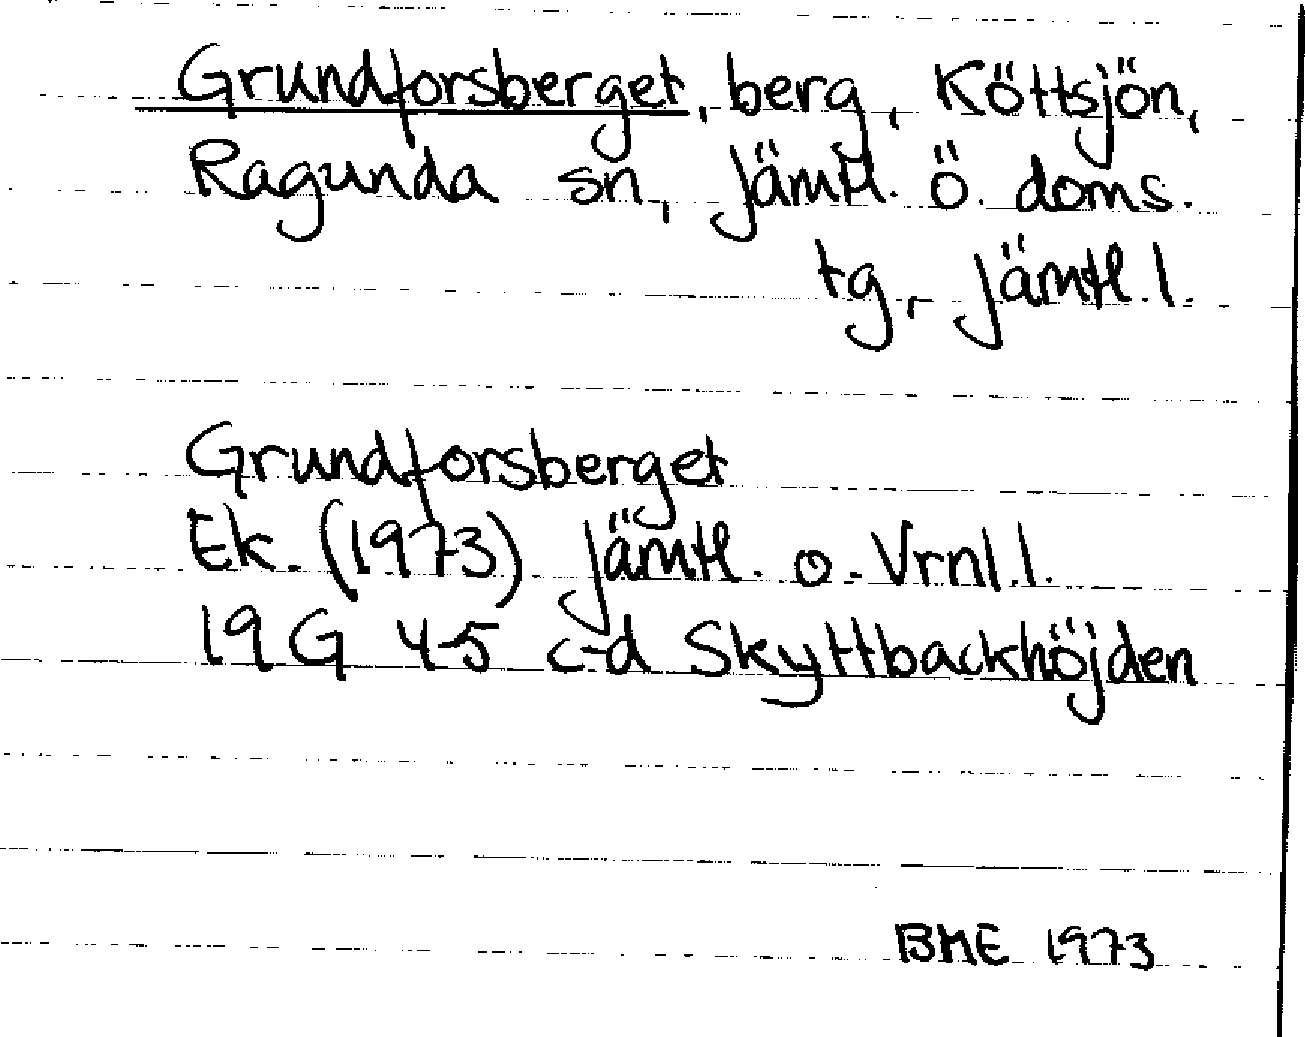 Grundforsberget, berg, Köttsjön,
Ragunda sn, Jämtl. ö. doms.
tg, Jämtl. l.
Grundforsberget
Ek. (1973) Jämtl. o. Vrnl. l.
19 G 4-5 c-d Skyttbackhöjden
BME 1973